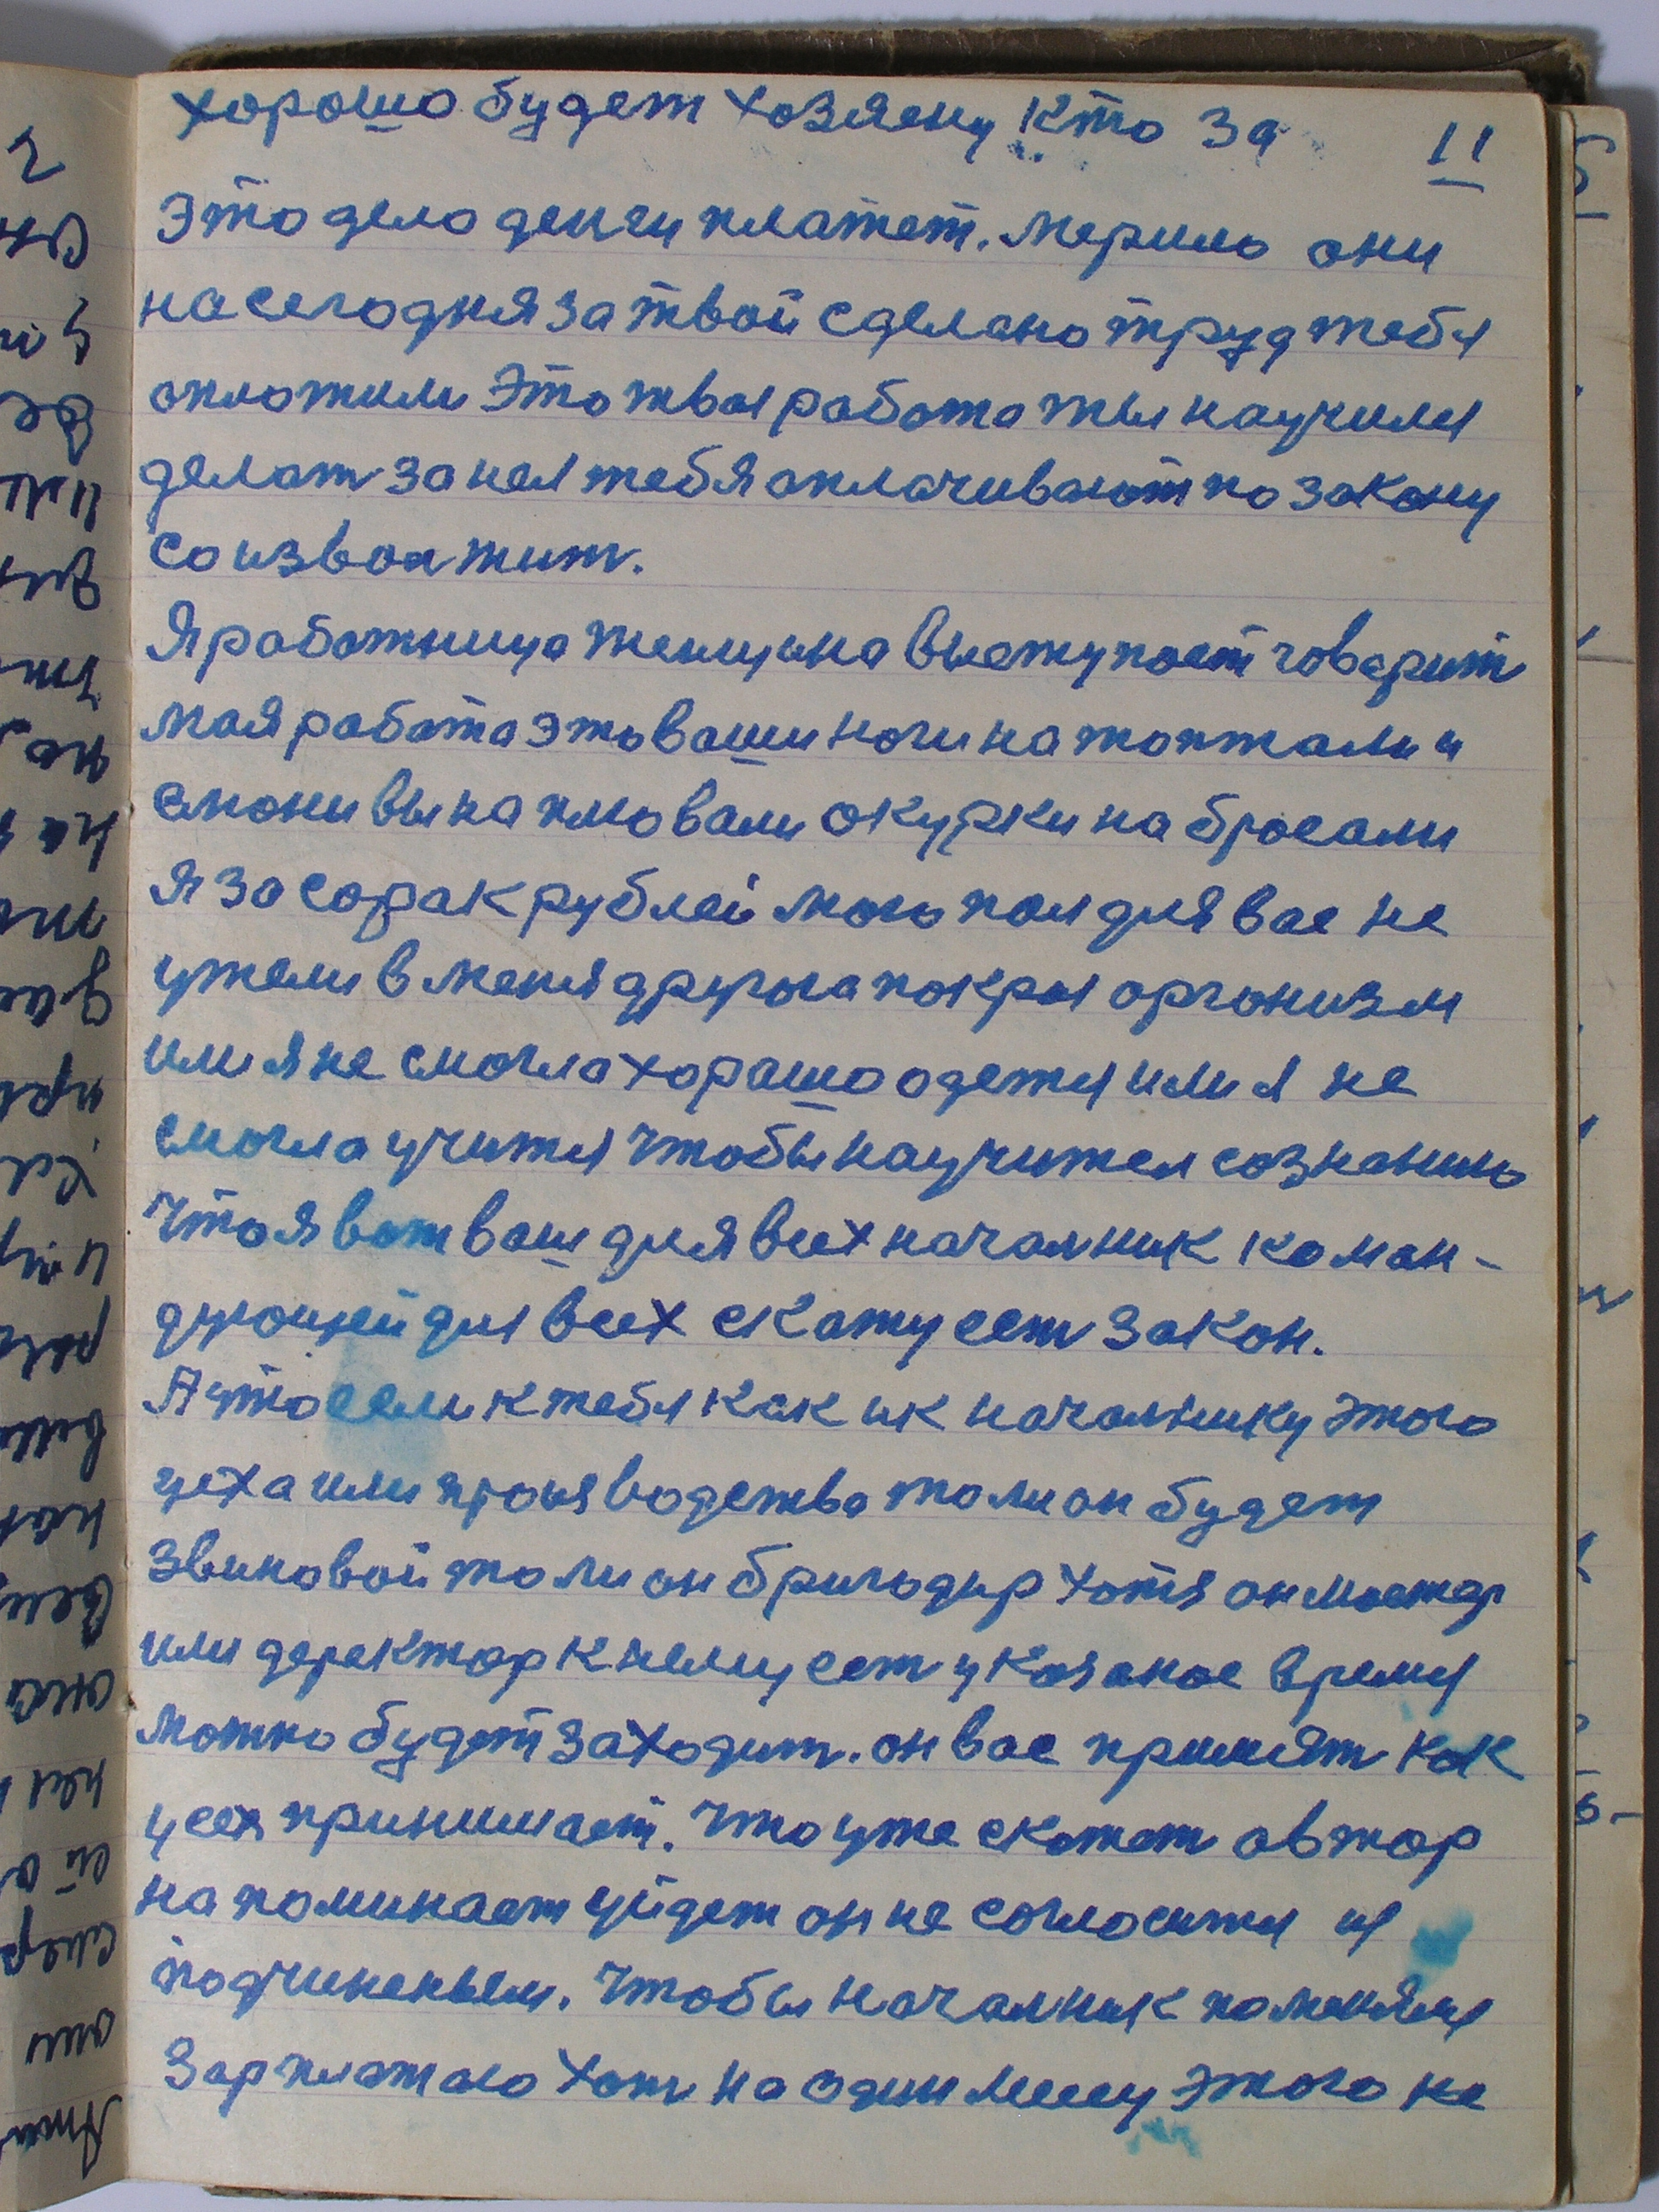 хорошо будет хозяену кто за
11
Это дело денги платет. мерило они
на сегодня за твой сделано труд тебя
оплотили Это твоя работа ты научился
делат за нея тебя оплачивают по закону
со извол жит.
Я работница женщина выступает говорит
моя работа это ваши ноги на топтали и
слюни вы на плювали окурки на бросали
Я за сорак рублей мою пол для вас не
ужели в меня друго на покроя организм
или я не смогла хорошо одется или я не
смогла учится чтобы научится сознанию
что я вот ваш для всех началник коман-
дующей для всех скажу ест закон.
А что если к тебя как и к началнику этого
цеха или производства толи он будет
звиновой толи он бригодир хотя он мастер
или деректор к нему ест указаное время
можно будет заходит. он вас примят как
усех принимает. что уже скажет автор
на поминает уйдет он не согласится из
подчиненым. чтобы началник поменялся
зарплатаю хот на один месец этого не